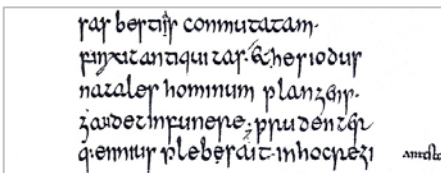 ras bestiis commutatam.
finxit antiquitas. & hesiodus
natales hominum plangens.
gaudet in funere. prudenter
q. ennius plebes ait. in hoc regi